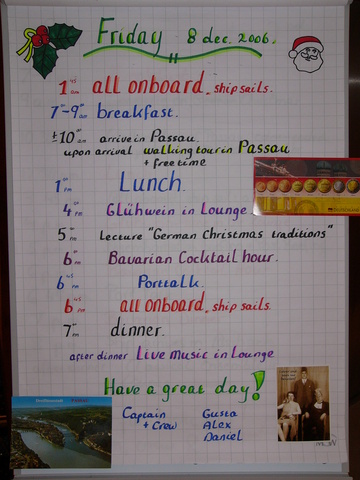 Friday 8 dec. 2006.
1 00 am all onboard, ship sails.
7 00 - 9 00 am breakfast.
±10 00 am arrive in Passau.
upon arrival walking tour in Passau
+ free time
1 00 pm Lunch.
4 00 pm Glühwein in Lounge.
5 00 pm Lecture "German Christmas traditions"
6 00 pm Bavarian Cocktail hour.
6 45 pm Porttalk.
6 45 pm all onboard, ship sails.
7 00 pm dinner.
after dinner Live Music in Lounge
Have a great day!
Captain
+ Crew
Gusta
Alex
Daniel